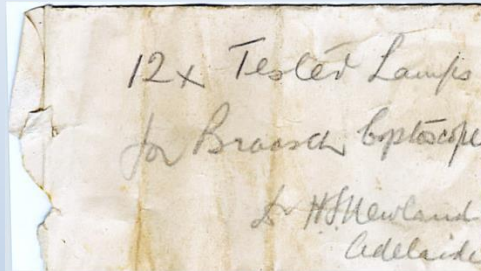 12x Tested Lamps
for Braasch Coptoscope
Dr H.S. Newland
Adelaide